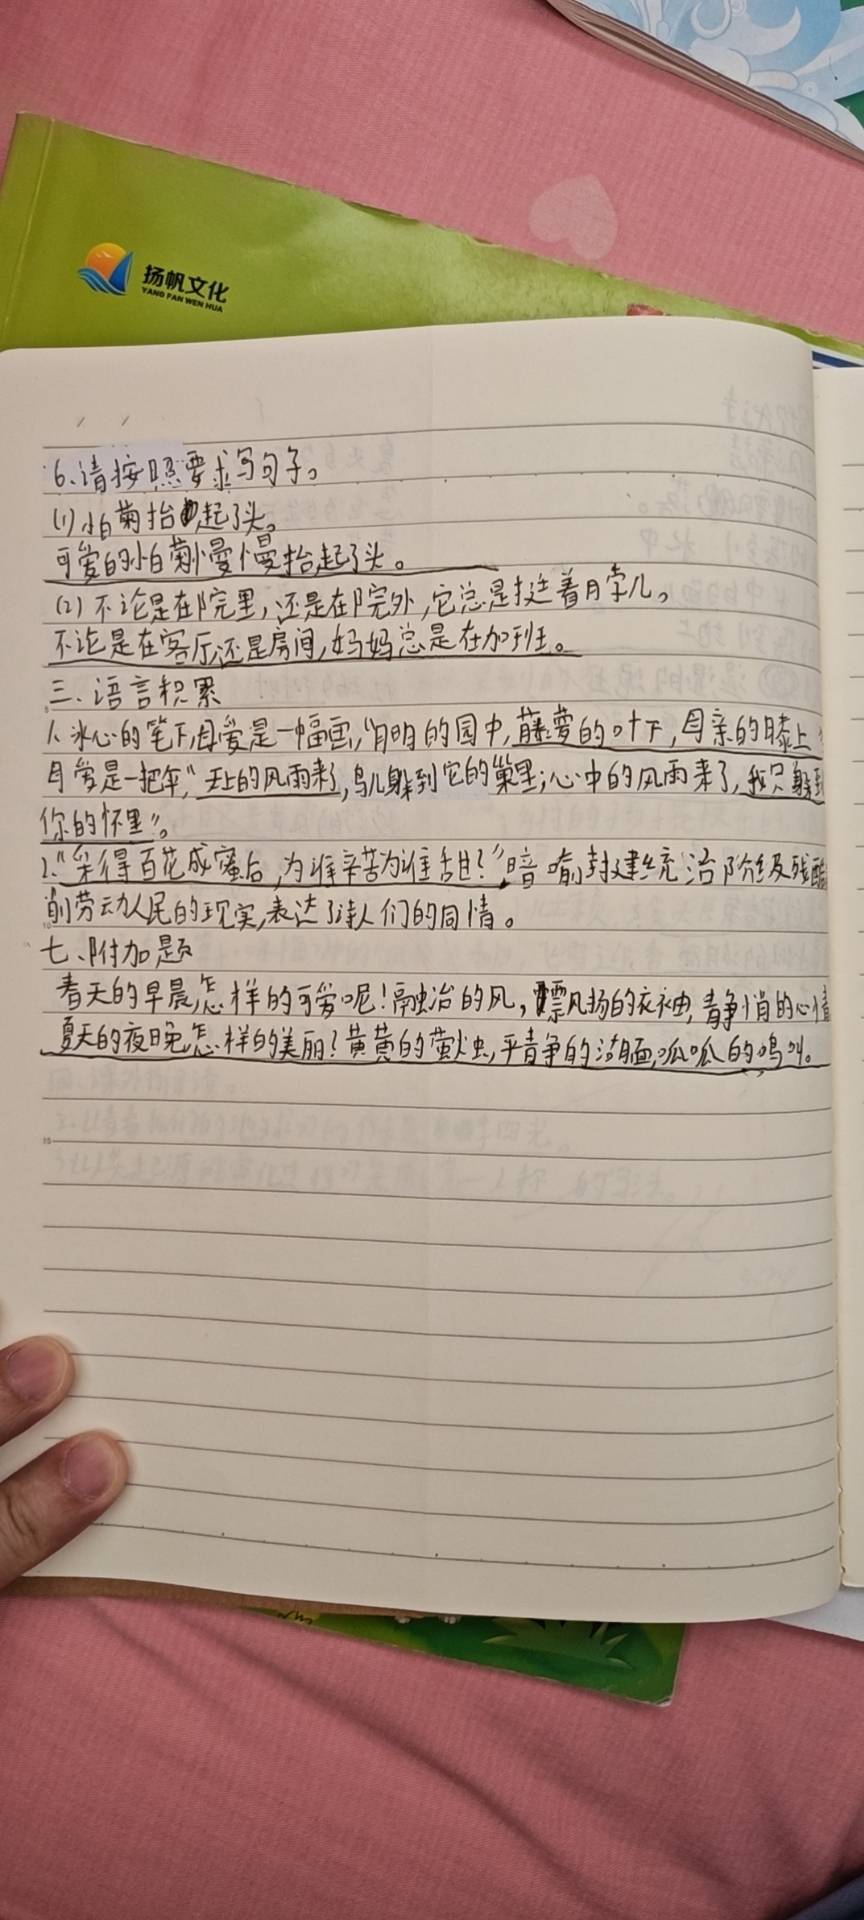 扬帆文化
YANG FAN WEN HUA
6、请按照要求写句子。
(1)小白菊抬起了头。
可爱的小白菊慢慢抬起了头。
(2)不论是在院里,还是在院外,它总是挺着胸儿。
不论是在客厅还是房间,妈妈总是在加班。
三、语言积累
1、冰心的笔下,母爱是一幅画,“月明的园中,藤萝的叶下,母亲的膝上”
母爱是一把伞,“天上的风雨来了,鸟儿躲到它的巢里;心中的风雨来了,我只躲到
你的怀里”。
2.“采得百花成蜜后,为谁辛苦为谁甜?”暗喻封建统治阶级残酷
削劳动人民的现实,表达了诗人们的同情。
七、附加题
春天的早晨,怎样的可爱呢!融洽的风,飘扬的衣袖,静悄的心情
夏天的夜晚怎样的美丽?黄黄的萤火虫,平静的湖面,呱呱的鸣叫。